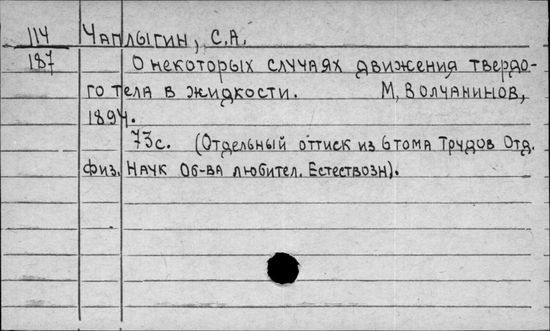 114 Чаплыгин, С.А.
187 О некоторых случаях движения твердо-
го тела в жидкости. М, Волчанинов,
1894.
73с. (Отдельный оттиск из 6 тома Трудов Отд.
физ. Наук Об-ва любител. Естествозн).